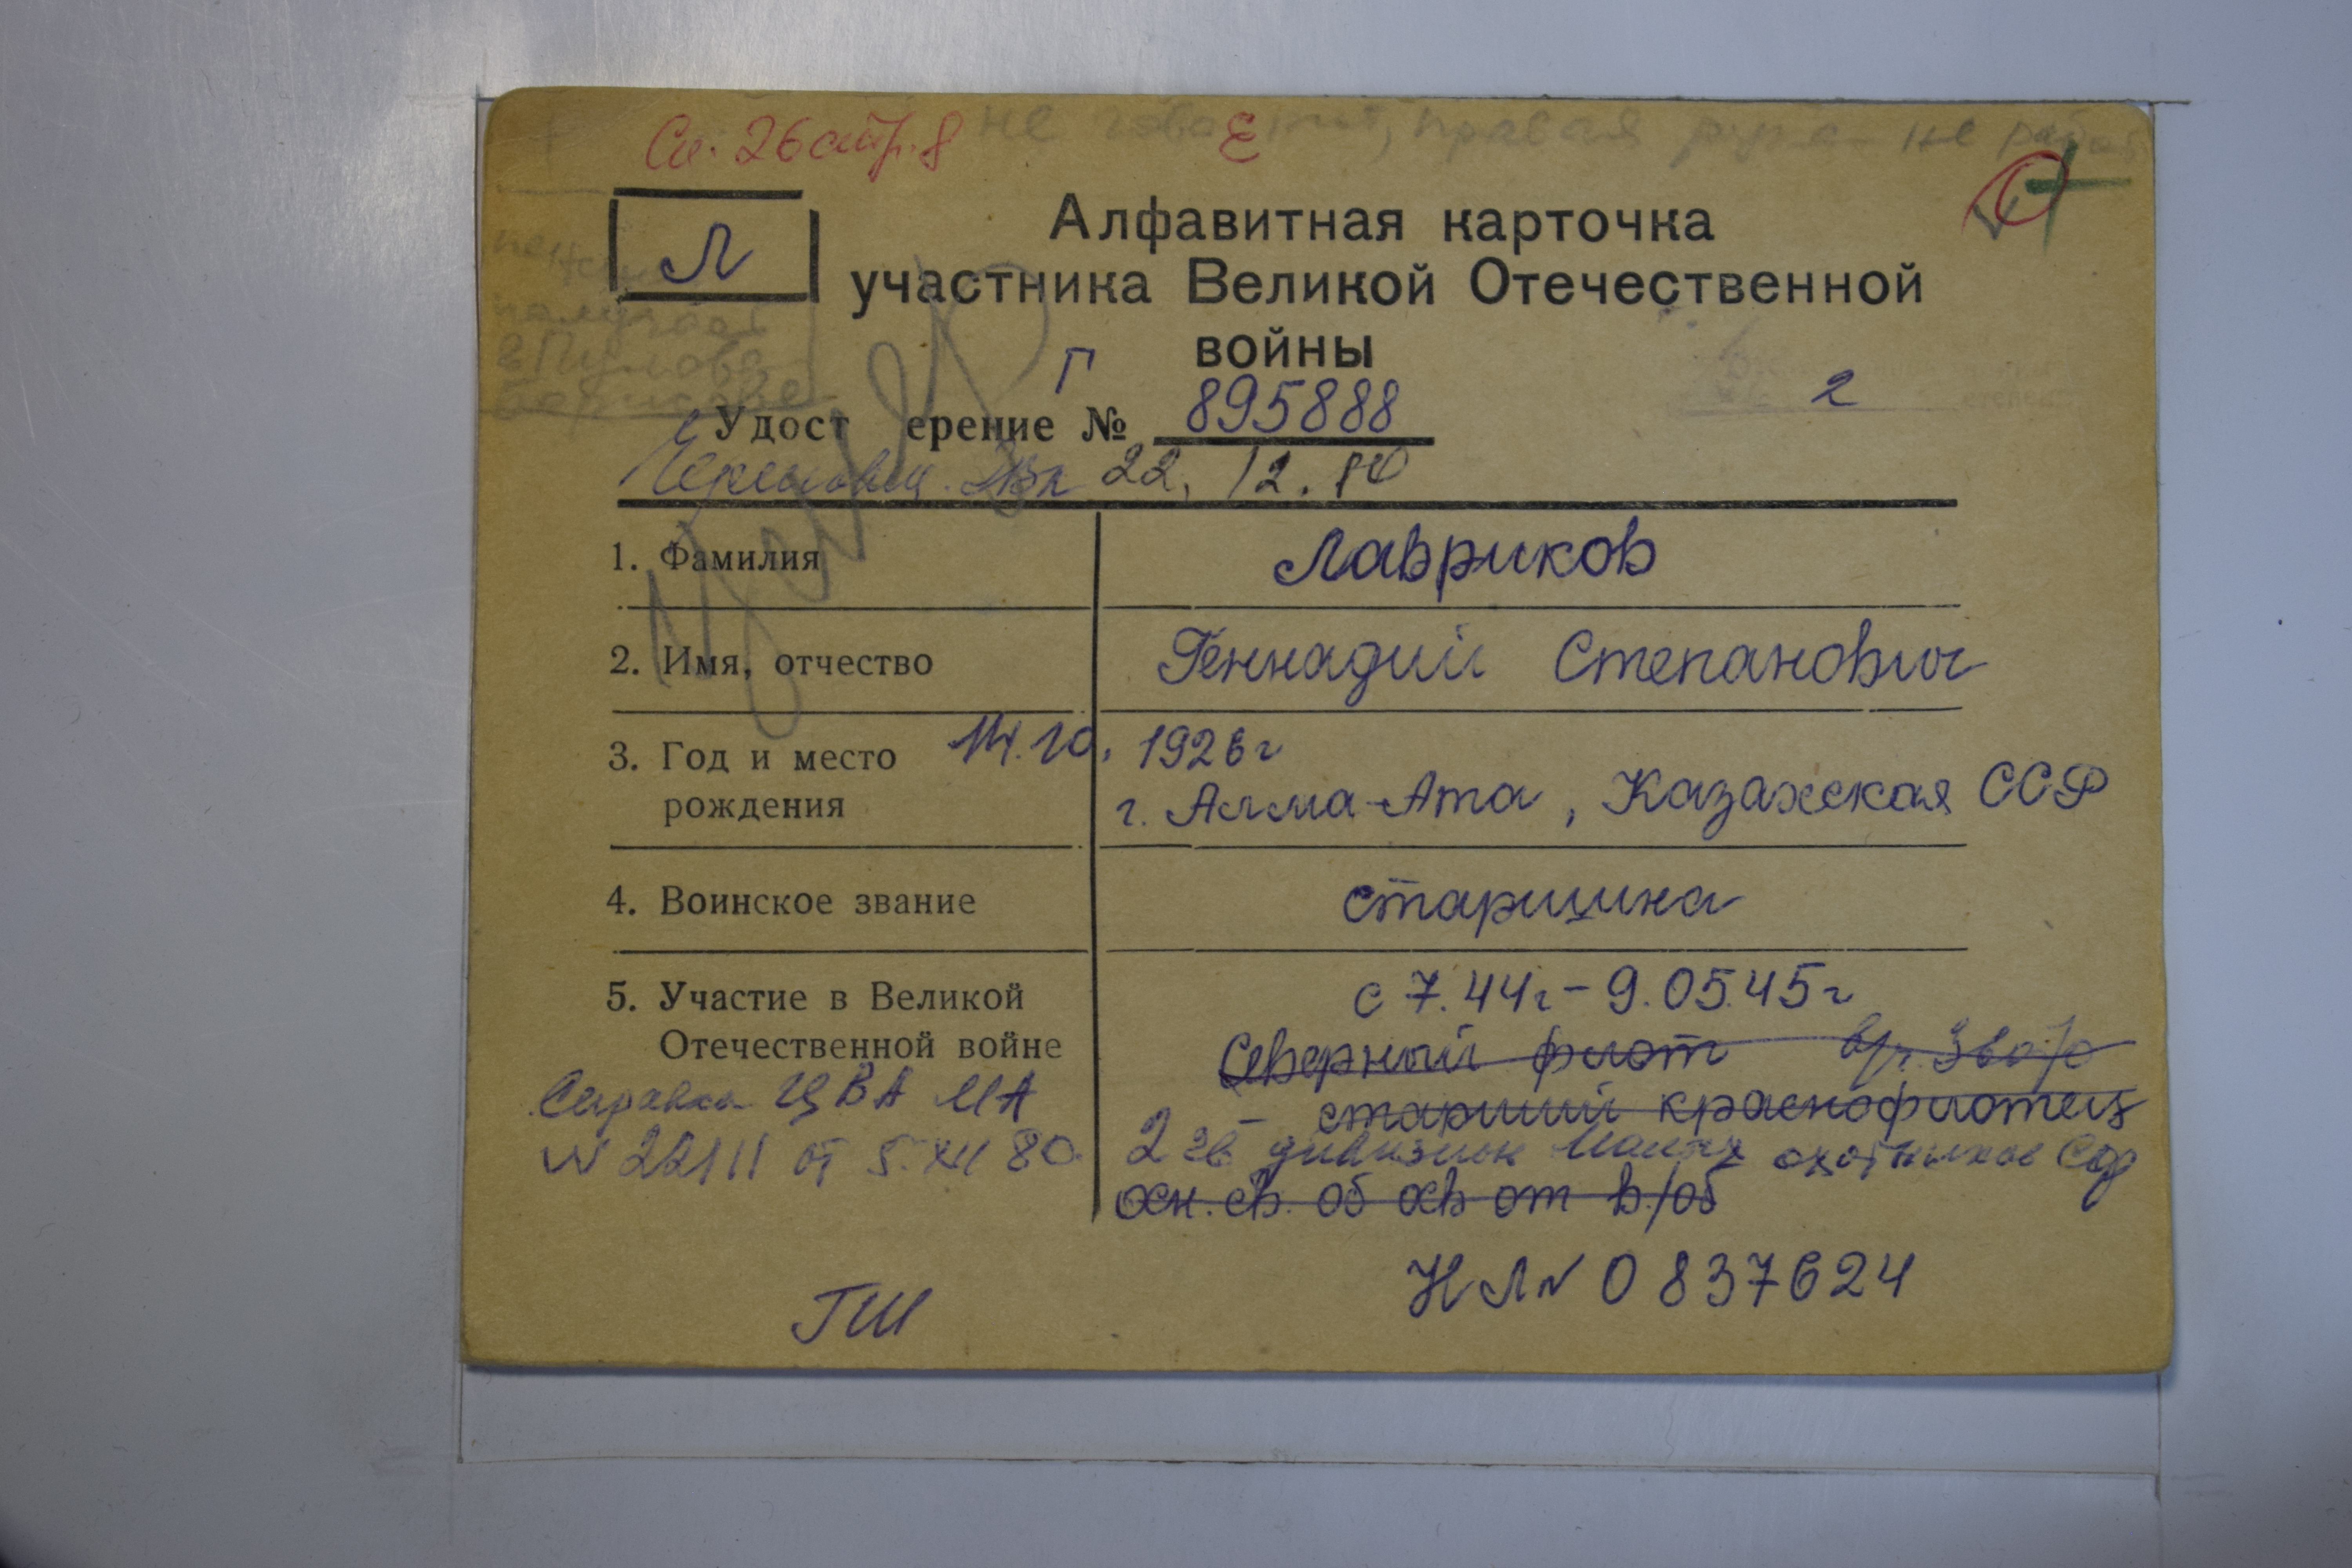 Сп. 26 стр. 8 не говорит, правая рука не работ
Л
Алфавитная карточка
участника Великой Отечественной
войны
получает
Г
2
Удостоверение № 895888
Череповец. ГВК 22.12.80
1. Фамилия Лавриков
2. Имя, отчество Геннадий Степанович
3. Год и место 14.10.1926г
рождения г. Алма-Ата, Казахская ССР
4. Воинское звание старшина
5. Участие в Великой с 7.44г - 9.05.45г
Отечественной войне Северный флот
старший краснофлотец
Справка ЦВА МА
2 гв дивизион Малых охотников Сф
№ 22111 от 5.XII 80
осн. св. об осв от в/об
НЛ № 0837624
ГШ